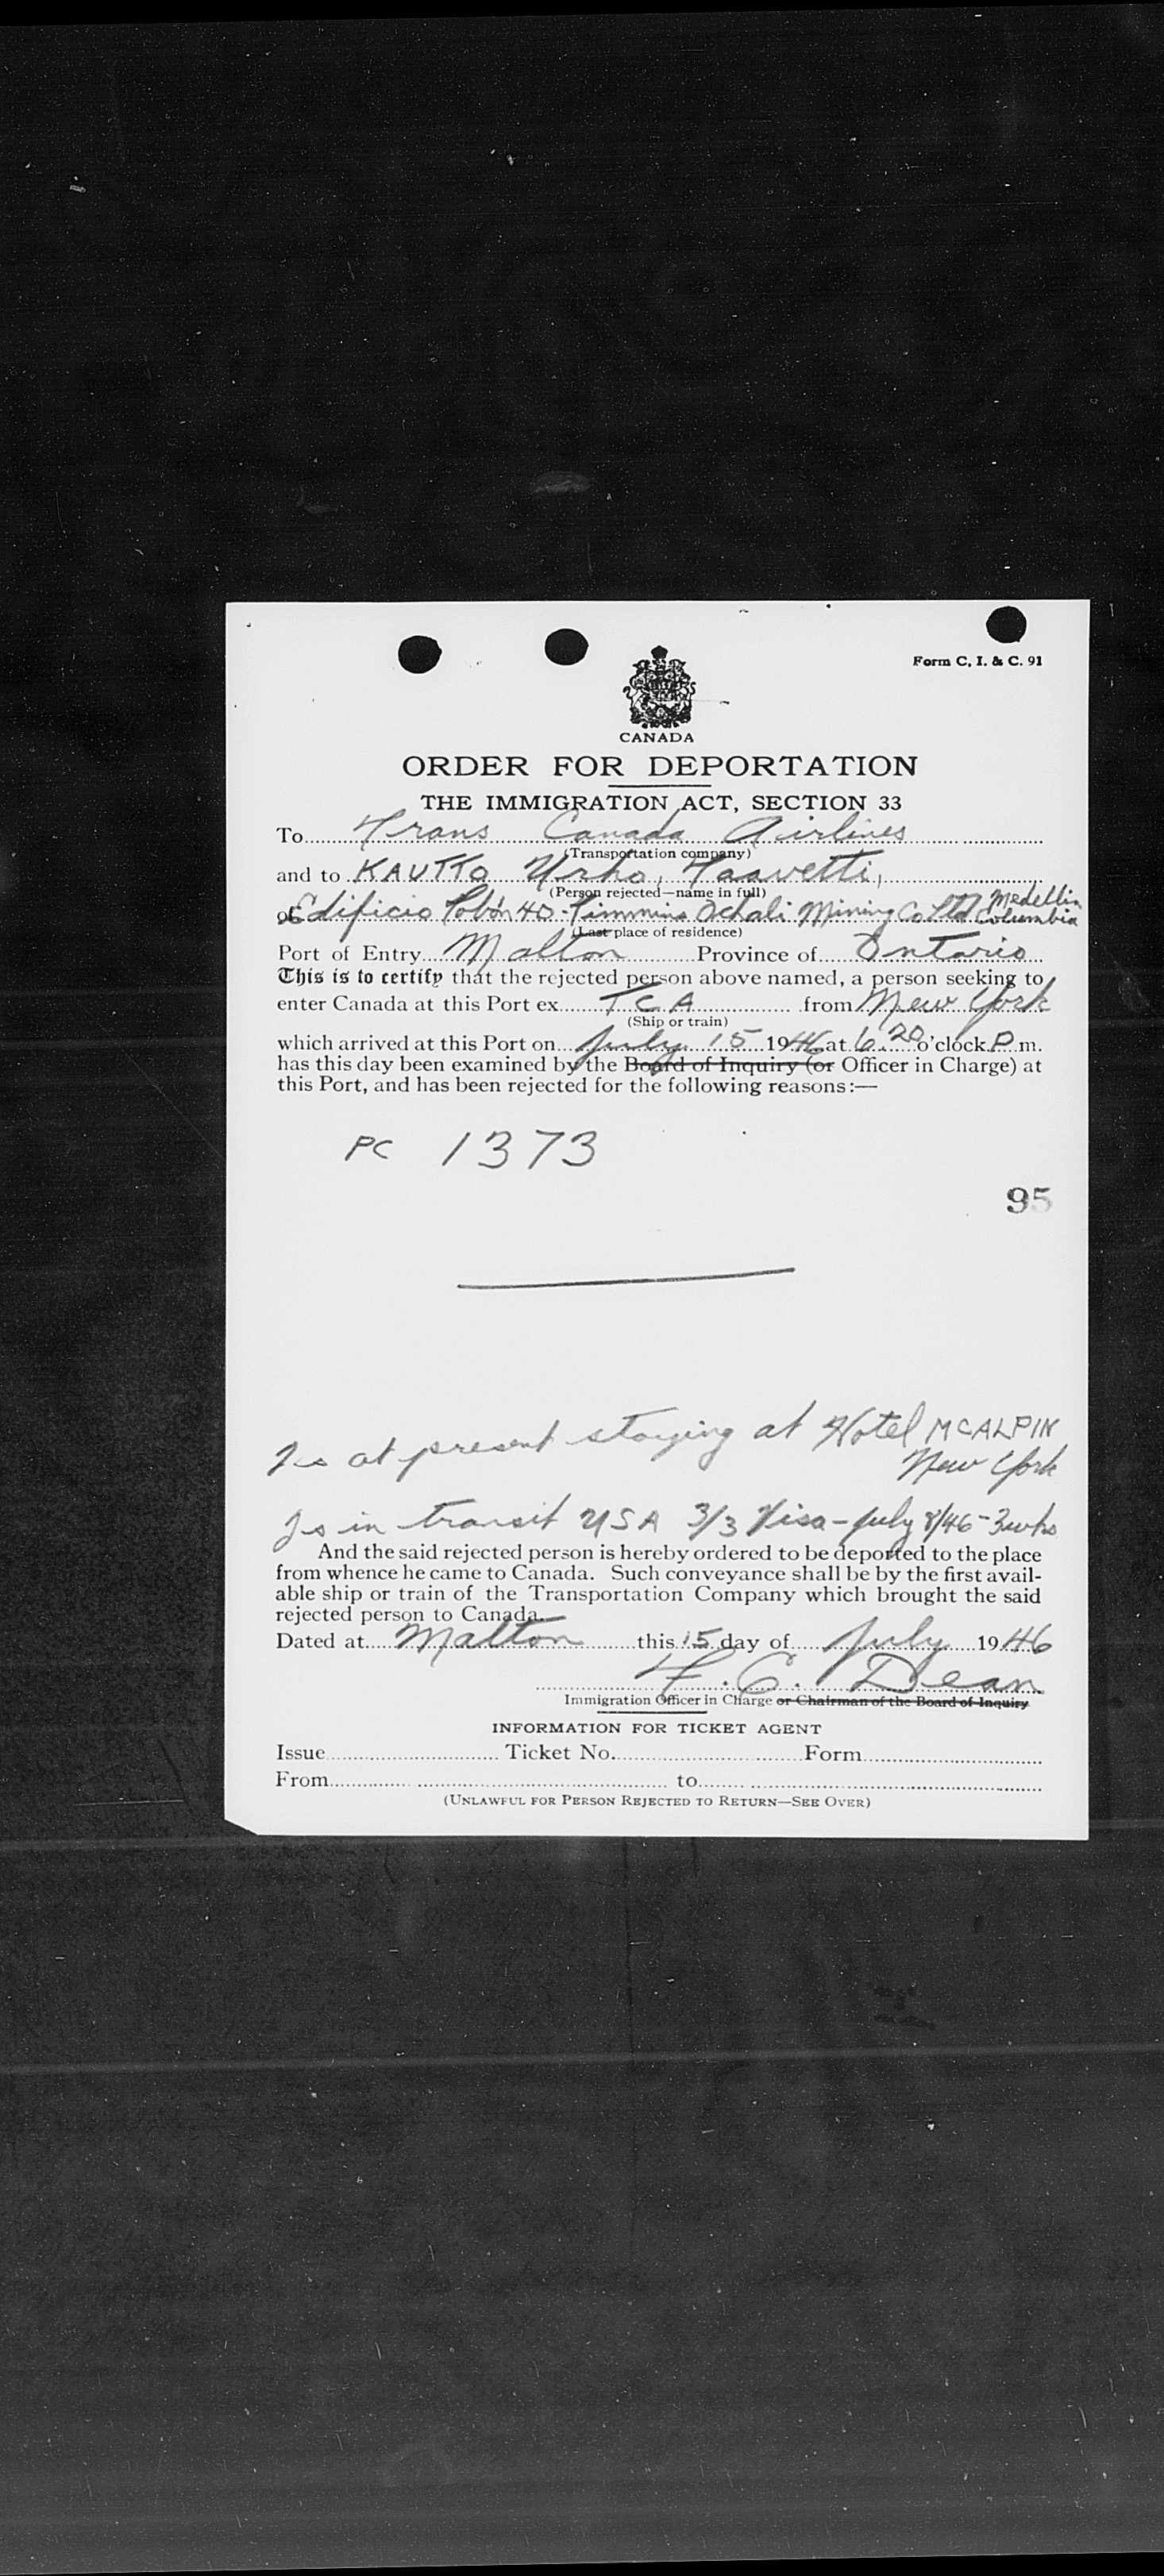 Form C. I. & C. 91
CANADA
ORDER FOR DEPORTATION
THE IMMIGRATION ACT, SECTION 33
To Trans Canada Airlines
(Transportation company)
and to KAUTTO Urho, Taavetti,
(Person rejected—name in full)
of Edificio Tobón 40 - Timmins Ochali Mining Co Ltd Medellin
Columbia
(Last place of residence)
Port of Entry Malton Province of Ontario
This is to certify that the rejected person above named, a person seeking to
enter Canada at this Port ex TCA from New York
(Ship or train)
which arrived at this Port on July 15 1946 at 6.20 o'clock P.m.
has this day been examined by the Board of Inquiry (or Officer in Charge) at
this Port, and has been rejected for the following reasons:—
PC 1373
95
Is at present staying at Hotel MCALPIN
New York
Is in transit USA 3/3 Visa - July 8/46 - 3 wks
And the said rejected person is hereby ordered to be deported to the place
from whence he came to Canada. Such conveyance shall be by the first avail-
able ship or train of the Transportation Company which brought the said
rejected person to Canada.
Dated at Malton this 15 day of July 1946
F. C. Dean
Immigration Officer in Charge or Chairman of the Board of Inquiry
INFORMATION FOR TICKET AGENT
Issue Ticket No. Form
From to
(UNLAWFUL FOR PERSON REJECTED TO RETURN—SEE OVER)